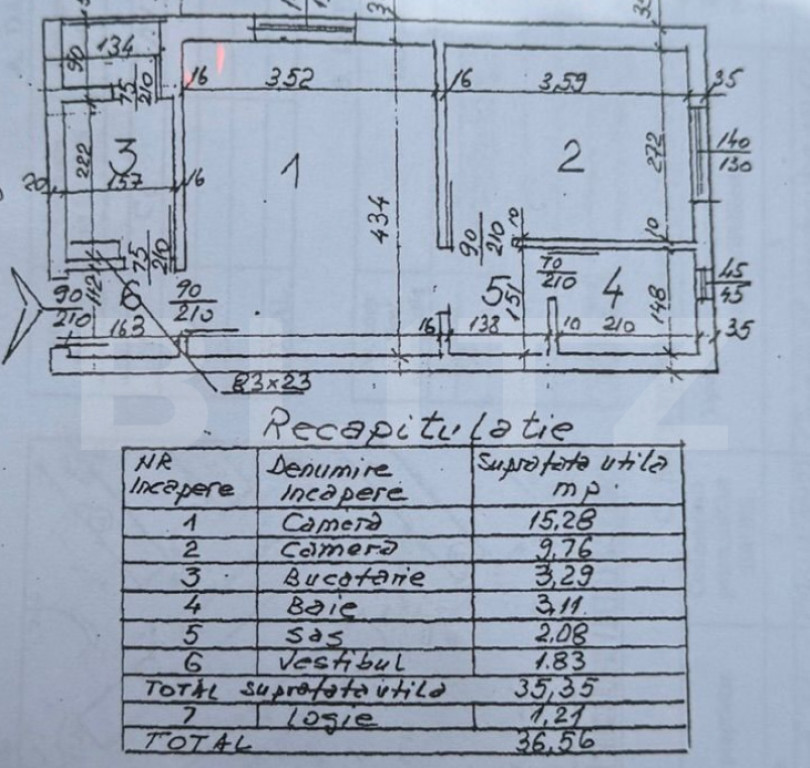 134
90
75
210
16
3,52
16
3,59
35
3
222
157
20
16
1
434
2
272
140
130
90
210
10
10
75
210
6
112
90
210
90
210
163
5
151
70
210
4
148
45
45
16
138
10
210
35
23x23
BLITZ
Recapitulatie
NR Incapere
Denumire incapere
Suprafata utila mp.
1 Camera 15,28
2 Camera 9,76
3 Bucatarie 3,29
4 Baie 3,11
5 Sas 2,08
6 Vestibul 1,83
TOTAL suprafata utila 35,35
7 Logie 1,21
TOTAL 36,56